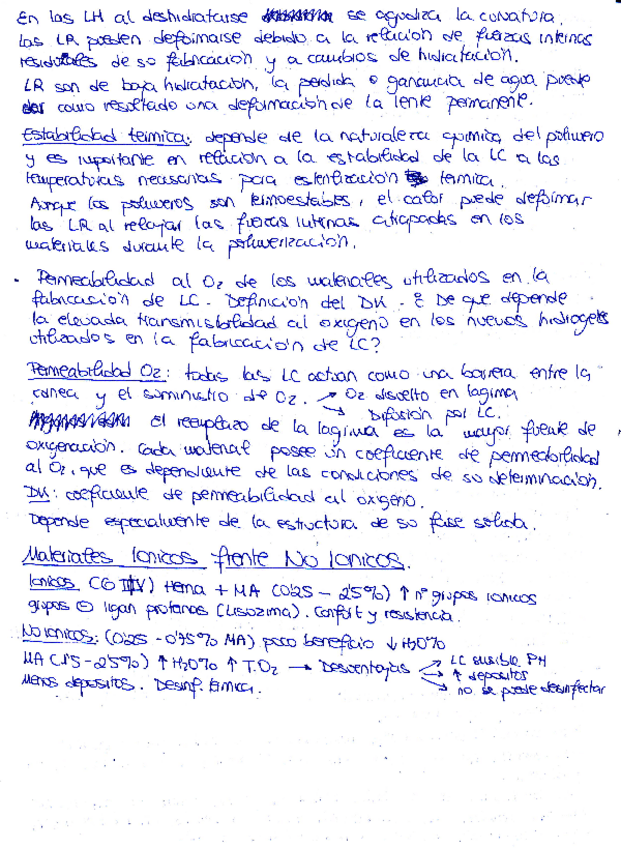 En las LH al deshidratarse se agudiza la curvatura.
las LR pueden deformarse debido a la relación de fuerzas internas
residuales de su fabricación y a cambios de hidratación.
LR son de baja hidratación, la perdida o ganancia de agua puede
dar como resultado una deformación de la lente permanente.
Estabilidad termica: depende de la naturaleza quimica del polimero
y es importante en relación a la estabilidad de la LC a las
temperaturas necesarias para esterilización termica.
Aunque los polimeros son termoestables, el calor puede deformar
las LR al relajar las fuerzas internas atrapadas en los
materiales durante la polimerización.
· Permeabilidad al O2 de los materiales utilizados en la
fabricación de LC. Definición del DK. ¿ De que depende
la elevada transmisibilidad al oxigeno en los nuevos hidrogeles
utilizados en la fabricación de LC?
Permeabilidad O2: todas las LC actuan como una barrera entre la
cornea y el suministro de O2. → O2 disuelto en lagrima
→ Difusión por LC.
El reemplazo de la lagrima es la mayor fuente de
oxigenación. Cada material posee un coeficiente de permeabilidad
al O2, que es dependiente de las condiciones de su determinación.
DK: coeficiente de permeabilidad al oxigeno.
Depende especialmente de la estructura de su fase solida.
Materiales Ionicos frente No Ionicos.
Ionicos (G IV) Hema + MA (0'25 - 2'5%) ↑ nº grupos ionicos
grupos ⊖ ligan proteinas (Lisozima). Confort y resistencia.
No ionicos: (0'25 - 0'75% MA) poco beneficio ↓ H2O%
MA (1'5 - 2'5%) ↑ H2O% ↑ T.O2 → Desventajas → LC sensible PH
→ ↑ depositos
Menos depositos. Desinf. termica. → no se puede desinfectar